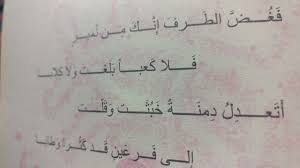 فَغُضَّ الطَّرفَ إِنَّكَ مِن نُمَيرٍ
فَلا كَعباً بَلَغتَ وَلا كِلابا
أَتَعدِلُ دِمنَةً خَبُثَت وَقَلَّت
إِلى فَرعَينِ قَد كَثُرا وَطابا